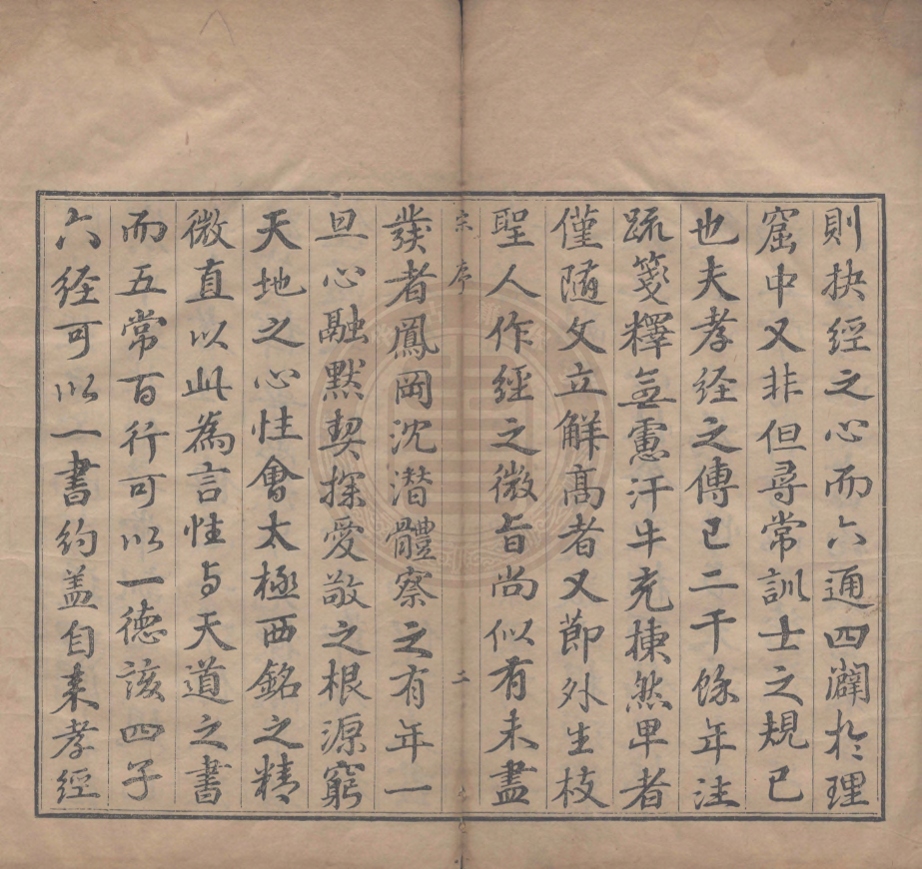 則抉經之心而六通四闢於理
窟中又非但尋常訓士之規已
也夫孝经之傳已二千餘年註
疏箋釋無慮汗牛充棟然卑者
僅隨文立解高者又節外生枝
聖人作經之微旨尚似有未盡
宗序 二
發者鳳岡沈潛體察之有年一
旦心融默契探愛敬之根源窮
天地之心性會太極西銘之精
微直以此為言性与天道之書
而五常百行可以一德該四子
六经可以一書約盖自来孝經